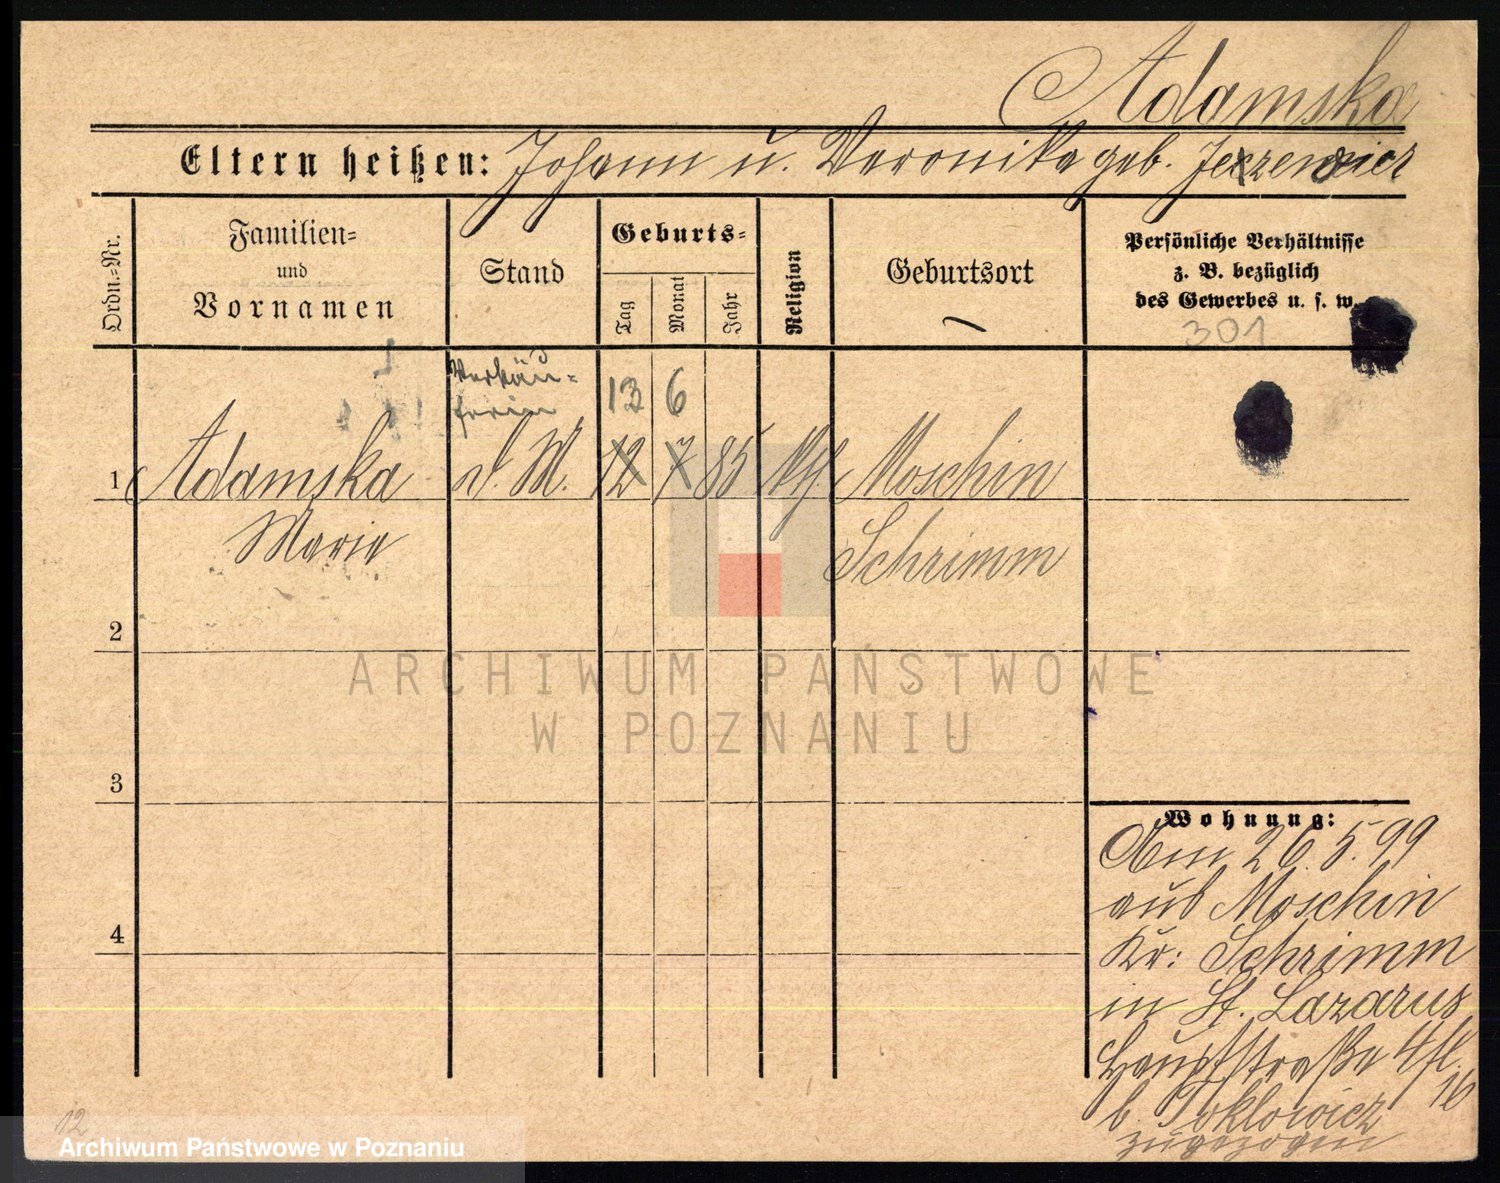 Adamska
Eltern heißen: Johann u. Veronika geb.
Ordn.=Nr.
Familien=
und
Vornamen
Stand
Geburts=
Tag
Monat
Jahr
Religion
Geburtsort
Persönliche Verhältnisse
z. B. bezüglich
des Gewerbes u. s. w.
301
Verkäu=
ferin
13 6
1 Adamska d. M. 12 7 85 Moschin
Marie Schrimm
2
ARCHIWUM PAŃSTWOWE
W POZNANIU
3
4
Wohnung:
Am 26.5.99
aus Moschin
Kr: Schrimm
in St. Lazarus
Hauptstraße
16
b.
zugezogen
12
Archiwum Państwowe w Poznaniu